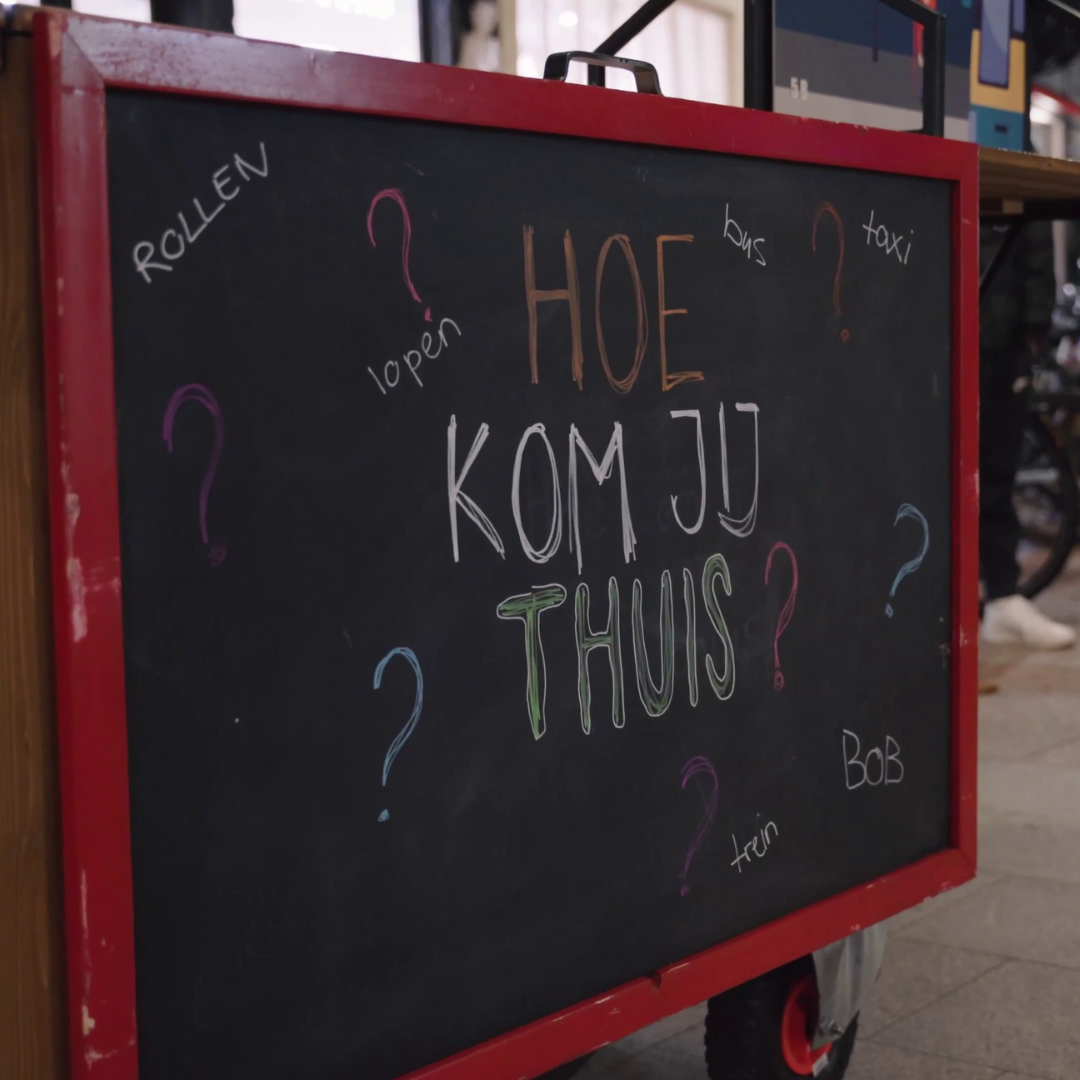 ROLLEN
?
lopen
HOE
bus
?
taxi
?
KOM JIJ
THUIS ?
?
?
BOB
?
trein
58